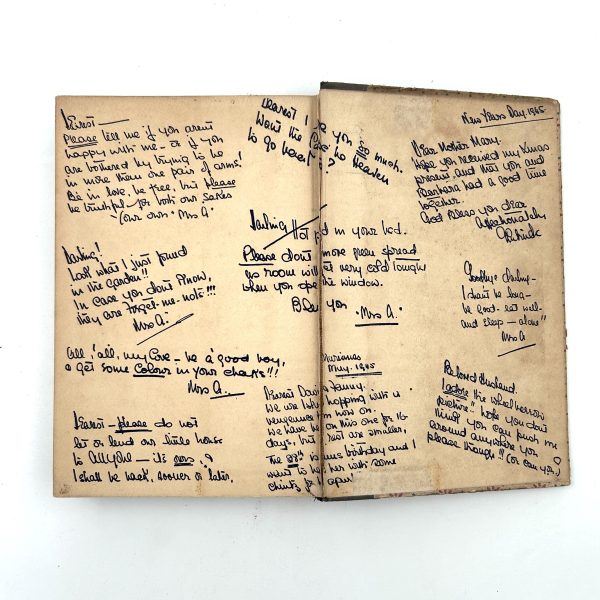 Dearest —
Please tell me if you aren't
happy with me — or if you
are bothered by trying to be
in more than one pair of arms!
Be in love, be free, but Please
be truthful — for both our sakes
Your own "Mrs A"
Darling!
Look what I just found
in the garden!!
In case you don't know,
they are forget-me-nots!!!
Mrs A.
All, all, my love — be a good boy,
& get some Colour in your cheeks!!!
Mrs A.
Dearest — please do not
let or lend our little house
to anyone — it's ours, &
I shall be back, sooner or later.
Dearest I
you too much.
Want the
no Heaven
to go
?
Darling
Hot
in your bed.
Please don't
more green spread
as room will
get very cold tonight
when you open
the window.
you
"Mrs A."
May. 1945
Dearest
Fanny.
We are
hopping with a
vengeance
now on.
We have
on this one for 16
days, but
are smaller.
The 28th is
birthday and I
want to
her with some
chintz for
New Years Day. 1945.
Dear Mother Mary.
Hope you received my Xmas
present, and that you and
Barbara had a good time
together.
God Bless you dear
Affectionately
Goodbye darling —
I shan't be long —
be good — eat well —
and sleep — alone!!
Mrs A
Beloved Husband.
I adore the wheelbarrow
picture!! hope you don't
mind you can push me
around anywhere you
please though!!! (or can you,)